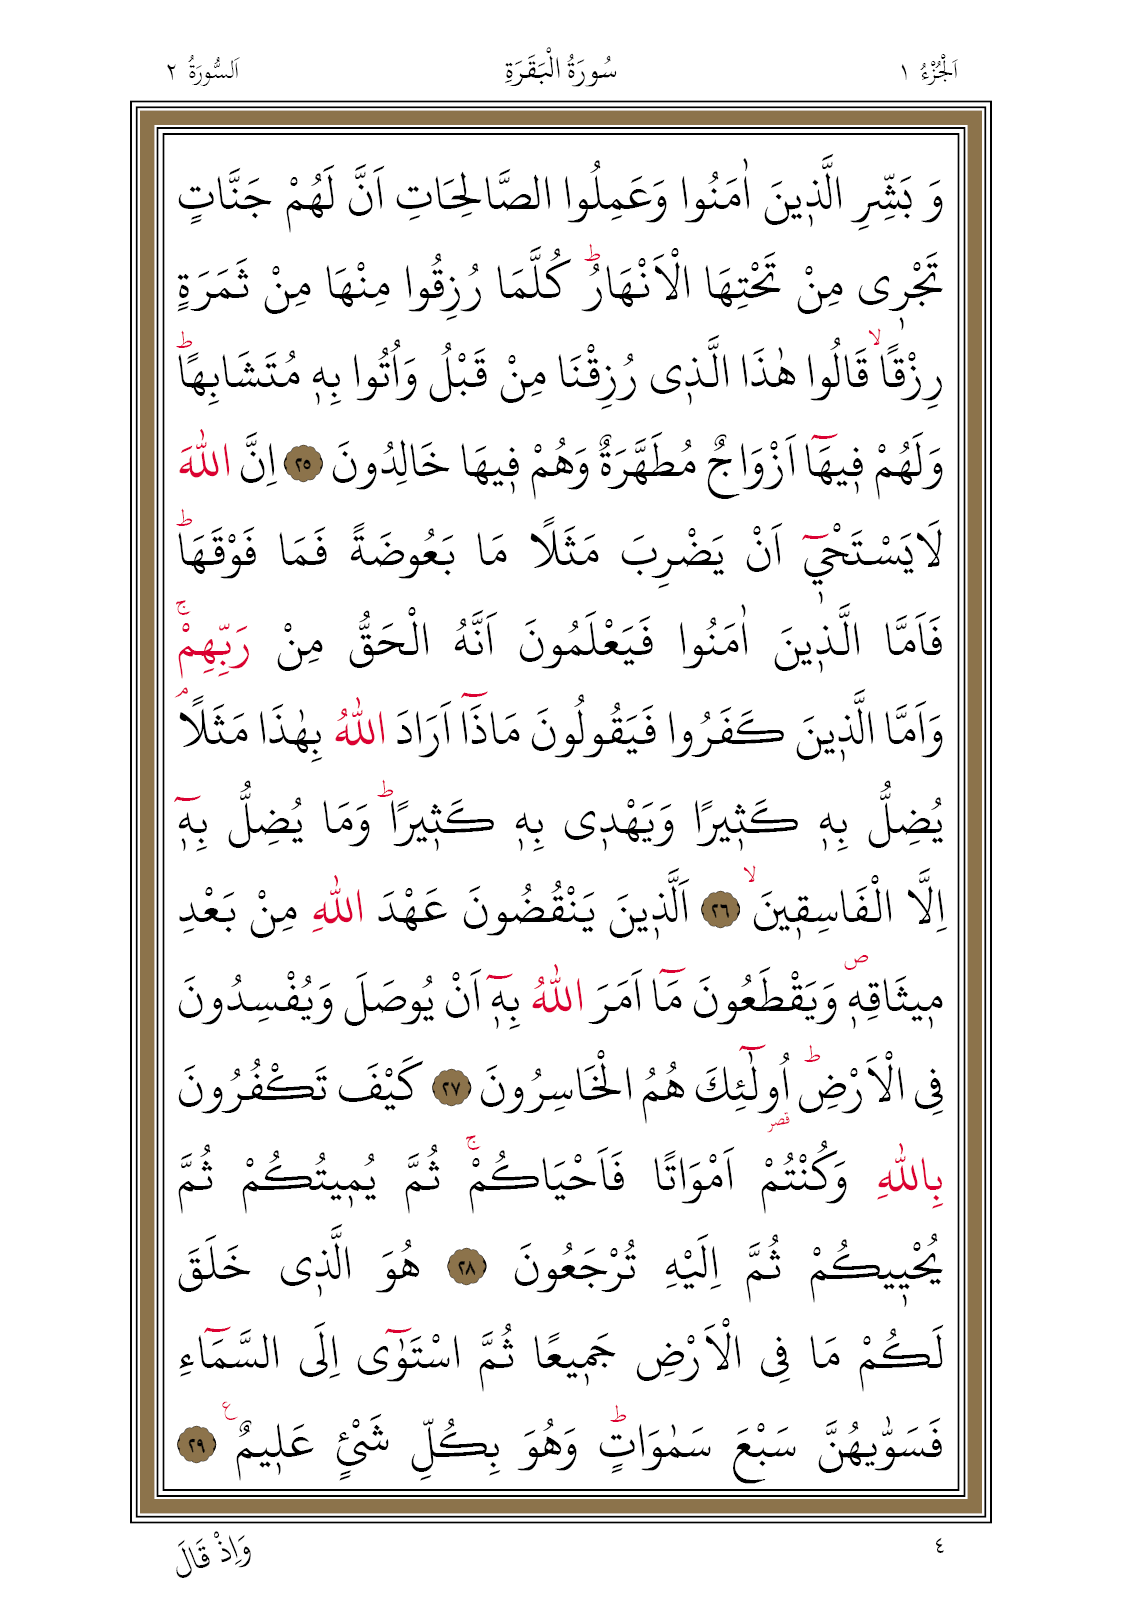 اَلْجُزْءُ ١ سُورَةُ الْبَقَرَةِ اَلسُّورَةُ ٢
وَ بَشِّرِ الَّذ۪ينَ اٰمَنُوا وَعَمِلُوا الصَّالِحَاتِ اَنَّ لَهُمْ جَنَّاتٍ
تَجْر۪ى مِنْ تَحْتِهَا الْاَنْهَارُۜ كُلَّمَا رُزِقُوا مِنْهَا مِنْ ثَمَرَةٍ
رِزْقًاۙ قَالُوا هٰذَا الَّذ۪ى رُزِقْنَا مِنْ قَبْلُ وَاُتُوا بِه۪ مُتَشَابِهًاؕ
وَلَهُمْ ف۪يهَٓا اَزْوَاجٌ مُطَهَّرَةٌ وَهُمْ ف۪يهَا خَالِدُونَ ٢٥ اِنَّ اللّٰهَ
لَايَسْتَحْي۪ٓ اَنْ يَضْرِبَ مَثَلًا مَا بَعُوضَةً فَمَا فَوْقَهَاؕ
فَاَمَّا الَّذ۪ينَ اٰمَنُوا فَيَعْلَمُونَ اَنَّهُ الْحَقُّ مِنْ رَبِّهِمْۚ
وَاَمَّا الَّذ۪ينَ كَفَرُوا فَيَقُولُونَ مَاذَٓا اَرَادَ اللّٰهُ بِهٰذَا مَثَلًاۢ
يُضِلُّ بِه۪ كَث۪يرًا وَيَهْد۪ى بِه۪ كَث۪يرًاؕ وَمَا يُضِلُّ بِه۪ٓ
اِلَّا الْفَاسِق۪ينَۙ ٢٦ اَلَّذ۪ينَ يَنْقُضُونَ عَهْدَ اللّٰهِ مِنْ بَعْدِ
م۪يثَاقِه۪ۖ وَيَقْطَعُونَ مَٓا اَمَرَ اللّٰهُ بِه۪ٓ اَنْ يُوصَلَ وَيُفْسِدُونَ
فِى الْاَرْضِؕ اُولٰٓئِكَ هُمُ الْخَاسِرُونَ ٢٧ كَيْفَ تَكْفُرُونَ
قصر
بِاللّٰهِ وَكُنْتُمْ اَمْوَاتًا فَاَحْيَاكُمْۚ ثُمَّ يُم۪يتُكُمْ ثُمَّ
يُحْي۪يكُمْ ثُمَّ اِلَيْهِ تُرْجَعُونَ ٢٨ هُوَ الَّذ۪ى خَلَقَ
لَكُمْ مَا فِى الْاَرْضِ جَم۪يعًا ثُمَّ اسْتَوٰٓى اِلَى السَّمَٓاءِ
فَسَوّٰيهُنَّ سَبْعَ سَمٰوَاتٍؕ وَهُوَ بِكُلِّ شَيْئٍ عَل۪يمٌ ع ٢٩
٤ وَاِذْ قَالَ